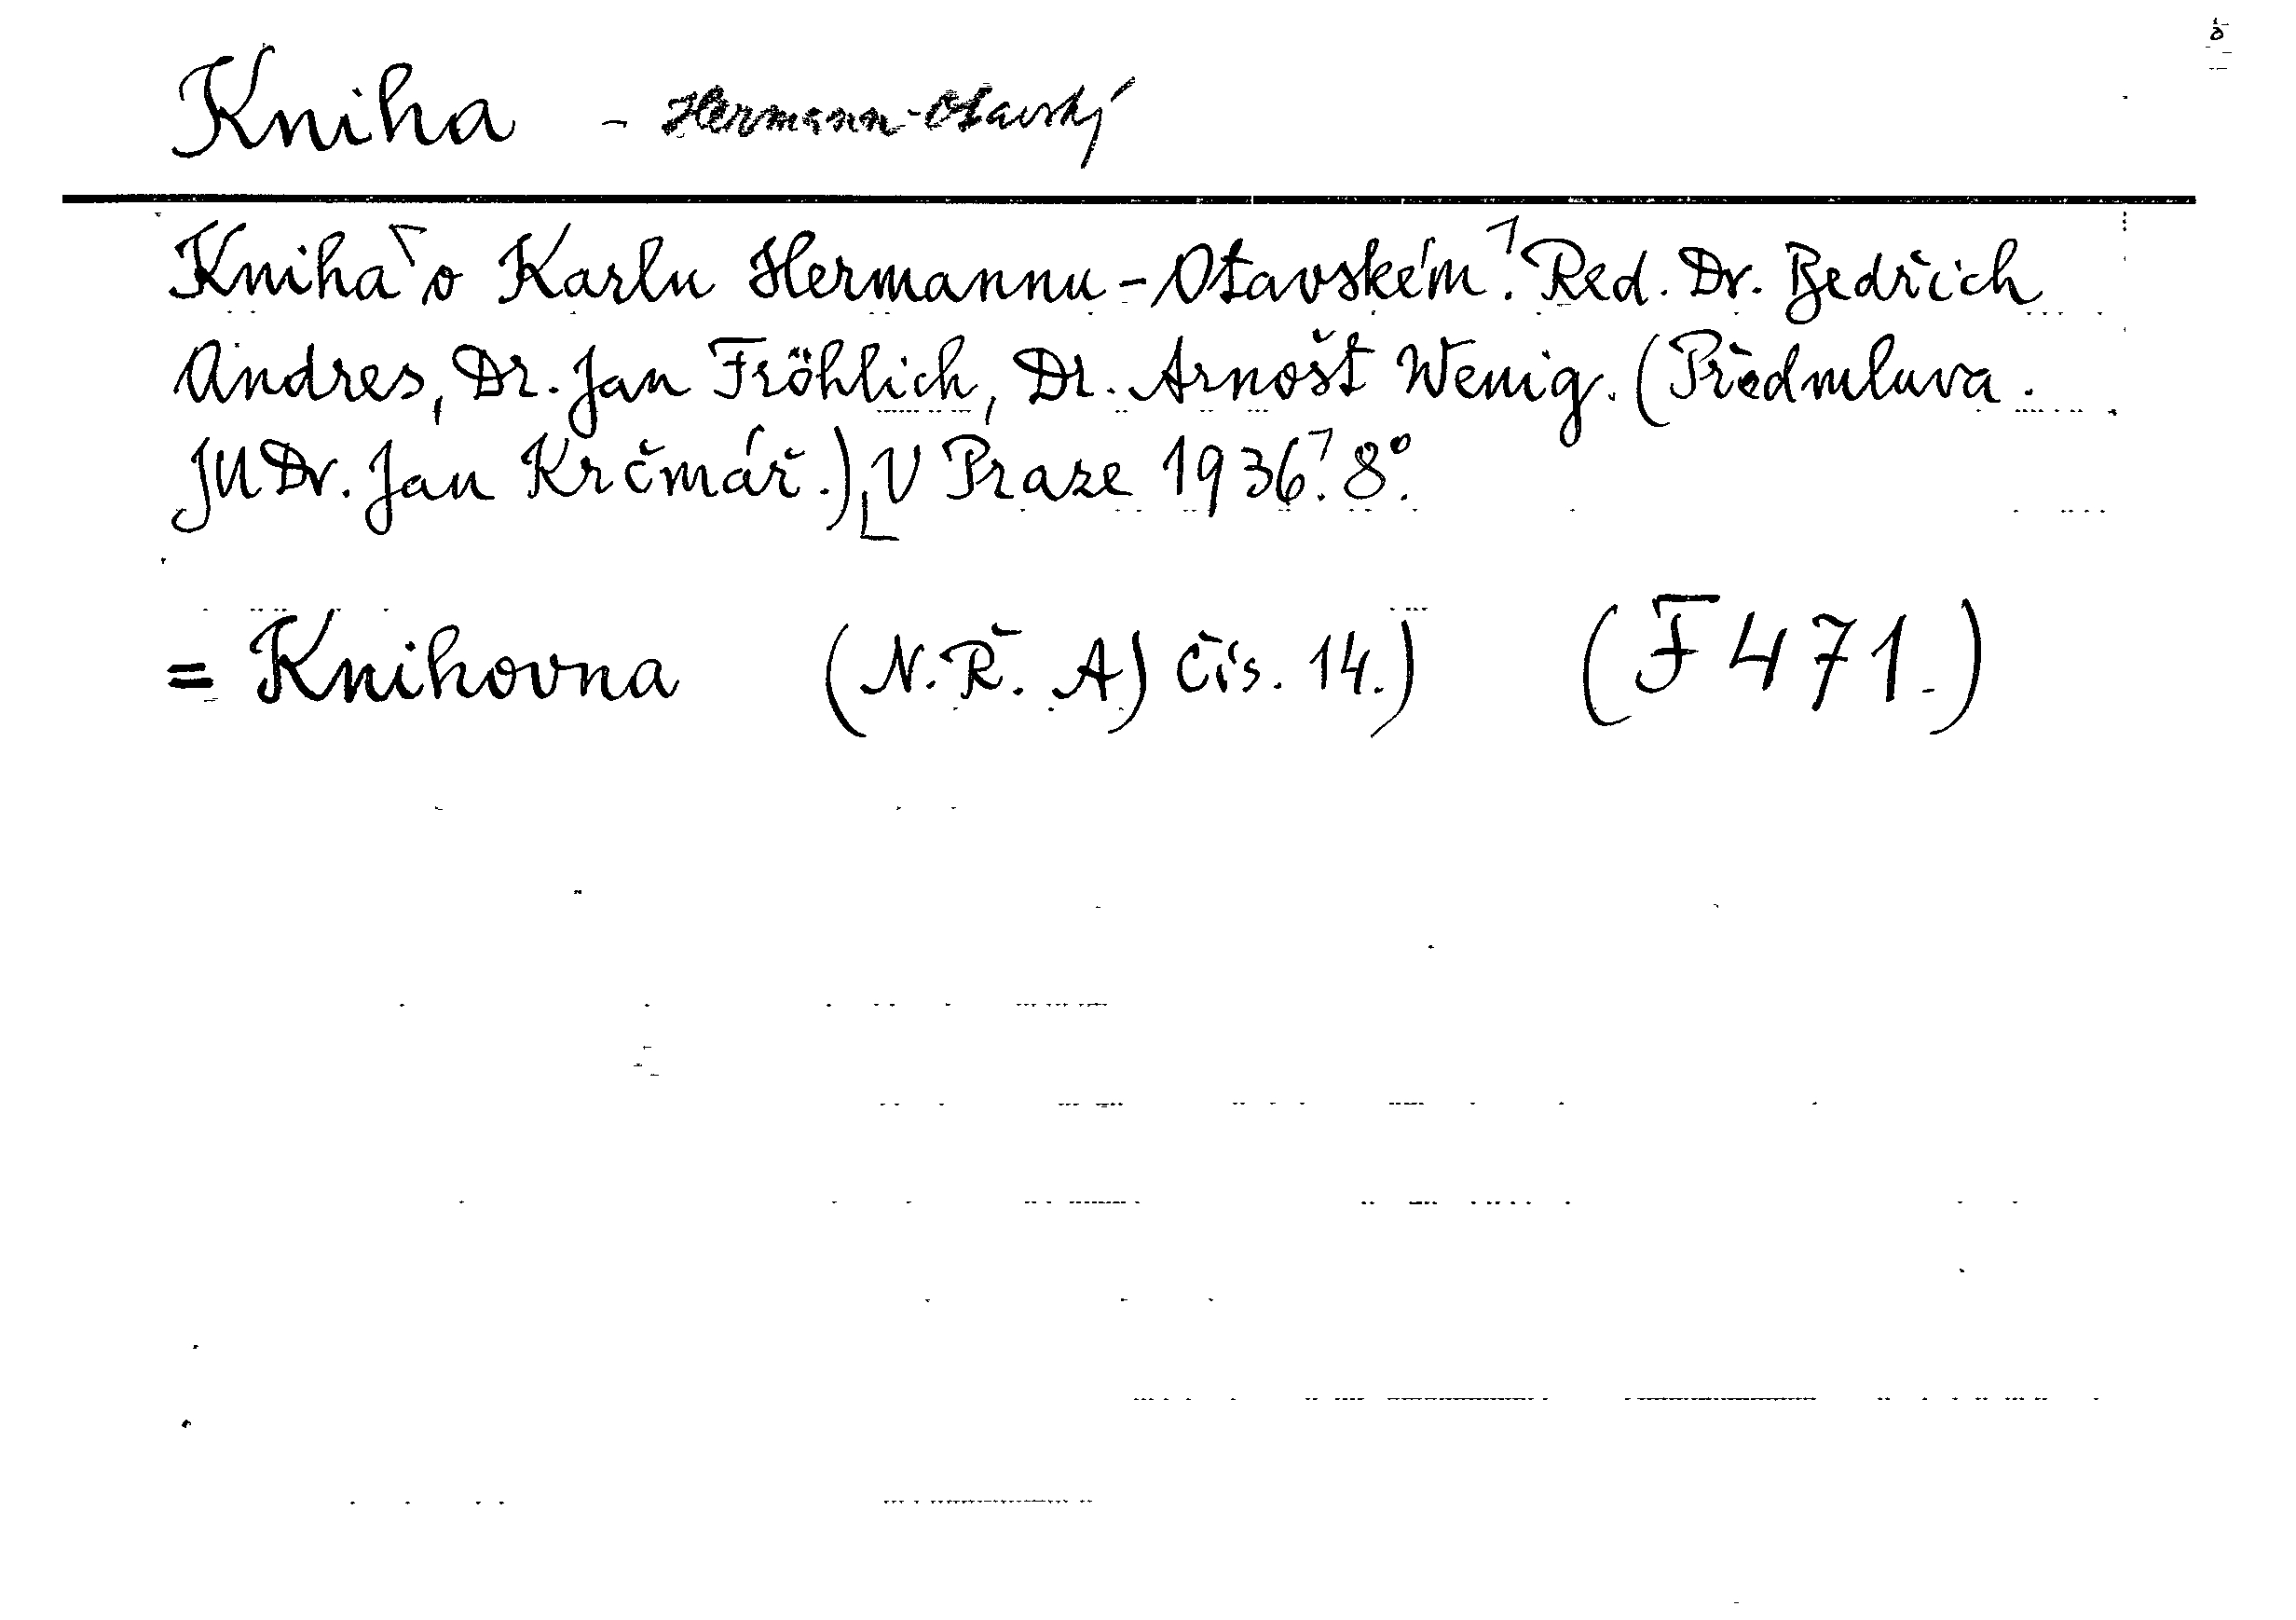 Kniha - Hermann-Otavský
Kniha o Karlu Hermannu-Otavském. Red. Dr. Bedřich
Andres, Dr. Jan Fröhlich, Dr. Arnošt Wenig. (Předmluva.
JUDr. Jan Krčmář.) V Praze 1936. 8°.
= Knihovna (N.Ř. A) Čís. 14.) (F 471.)